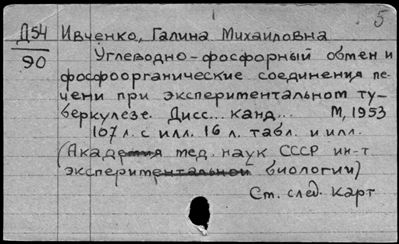 5
Д54 Ивченко, Галина Михайловна
90 Углеводно-фосфорный обмен и
фосфоорганические соединения пе-
чени при экспериментальном ту-
беркулезе. Дисс... канд... М, 1953
107 л. с илл. 16 л. табл. и илл.
(Академия мед. наук СССР ин-т
экспериментальной биологии)
Ст. след. карт